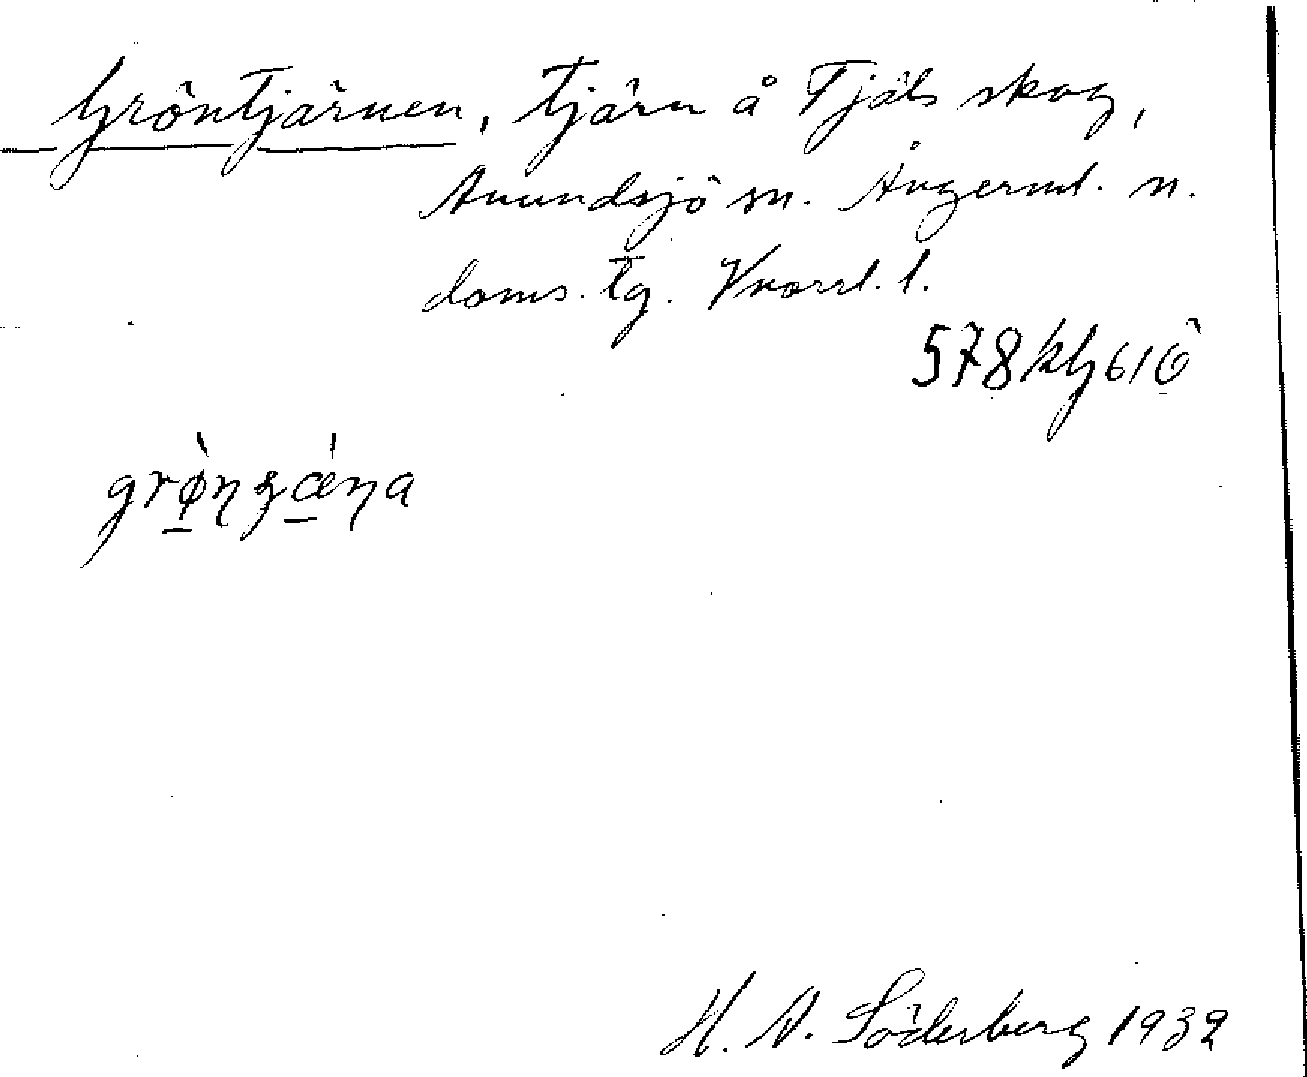 Gröntjärnen, tjärn å Tjäls skog,
Anundsjö sn. Ångerml. n.
doms. tg. Vnorrl. l.
578
grø̀nʒǽŋa
H. A. Söderberg 1932